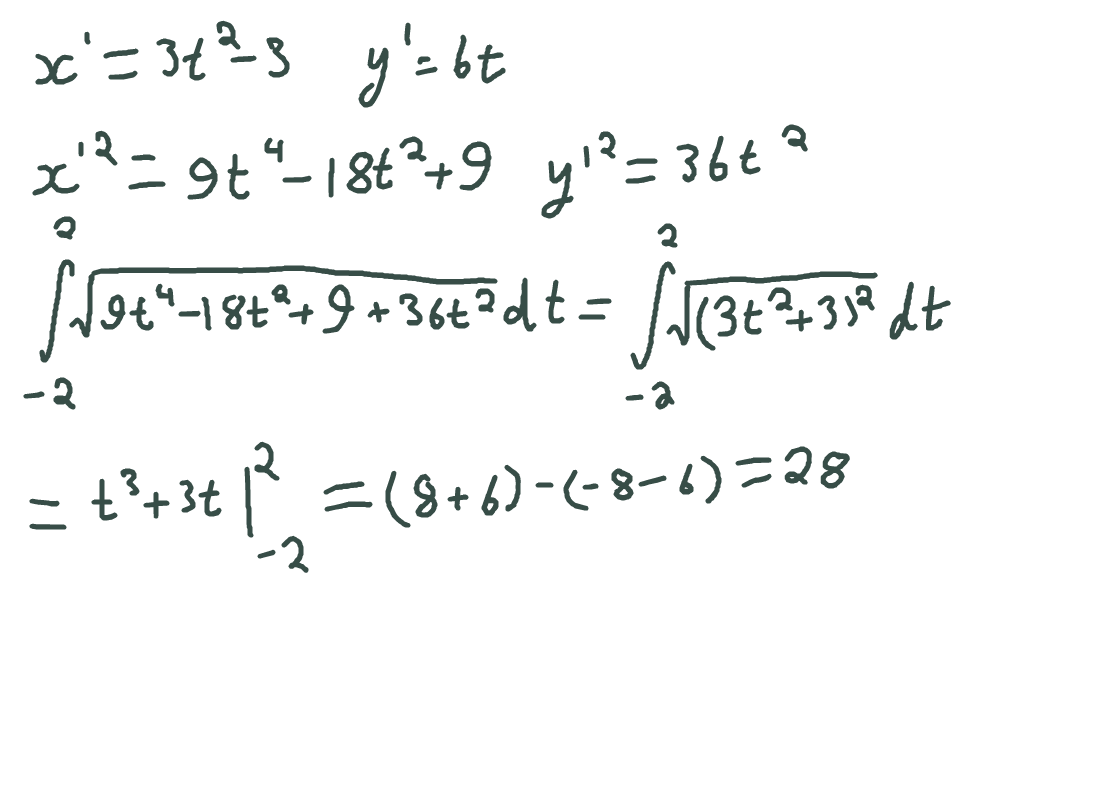 x' = 3t² - 3 y' = 6t
x'² = 9t⁴ - 18t² + 9 y'² = 36t²
∫_{-2}^{2} √(9t⁴ - 18t² + 9 + 36t²) dt = ∫_{-2}^{2} √((3t² + 3)²) dt
= t³ + 3t |_{-2}^{2} = (8 + 6) - (-8 - 6) = 28